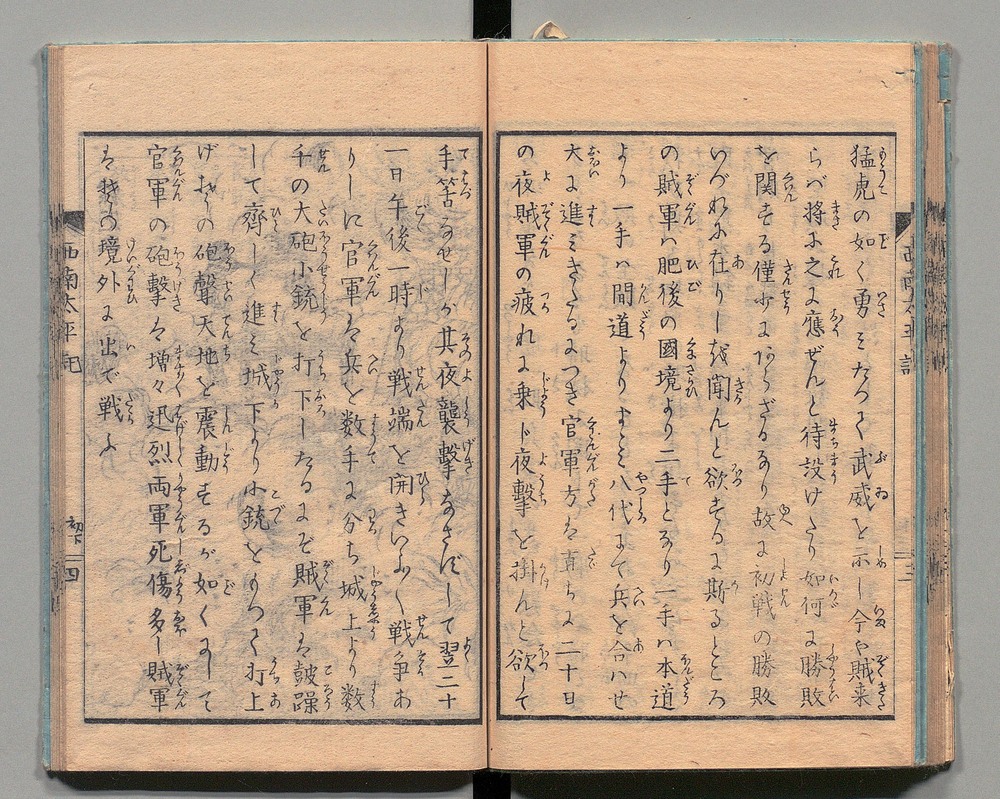 猛虎の如く勇みたつて武威を示し今や賊来
らバ将に之に應ぜんと待設けたり如何に勝敗
を関する僅少にあらざるなり故に初戦の勝敗
いづれに在りしぞ聞んと欲するに斯るところ
の賊軍ハ肥後の國境より二手となり一手ハ本道
より一手ハ間道よりすゝミ八代にて兵を合ハせ
大に進ミきたるにつき官軍方は直ちに二十日
の夜賊軍の疲れに乗ト夜撃を掛んと欲して
手筈なせしが其夜襲撃なさずして翌二十
一日午後一時より戦端を開きいよ〱戦争あ
りしに官軍は兵を数手に分ち城上より数
千の大砲小銃を打下したるにぞ賊軍は皷躁
して齊しく進ミ城下より小銃をもつて打上
げ其の砲聲天地を震動するが如くにして
官軍の砲撃は増々迅烈両軍死傷多し賊軍
は其の境外に出で戦ふ
西南太平記
三
西南太平記
初
四